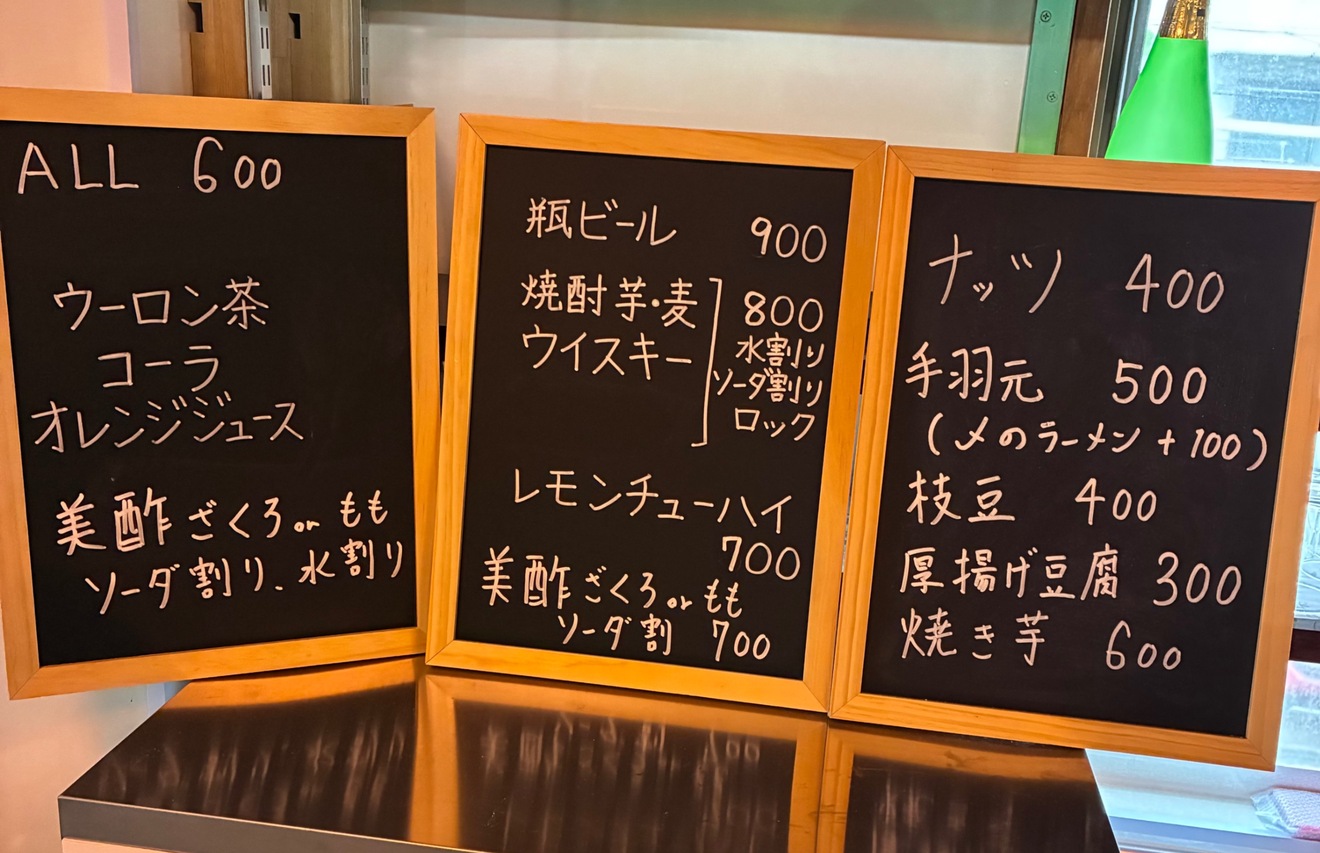 ALL 600
ウーロン茶
コーラ
オレンジジュース
美酢 ざくろ or もも
ソーダ割り、水割り
瓶ビール 900
焼酎 芋・麦 800
ウイスキー 水割り
ソーダ割り
ロック
レモンチューハイ
700
美酢 ざくろ or もも
ソーダ割 700
ナッツ 400
手羽元 500
(〆のラーメン +100)
枝豆 400
厚揚げ豆腐 300
焼き芋 600